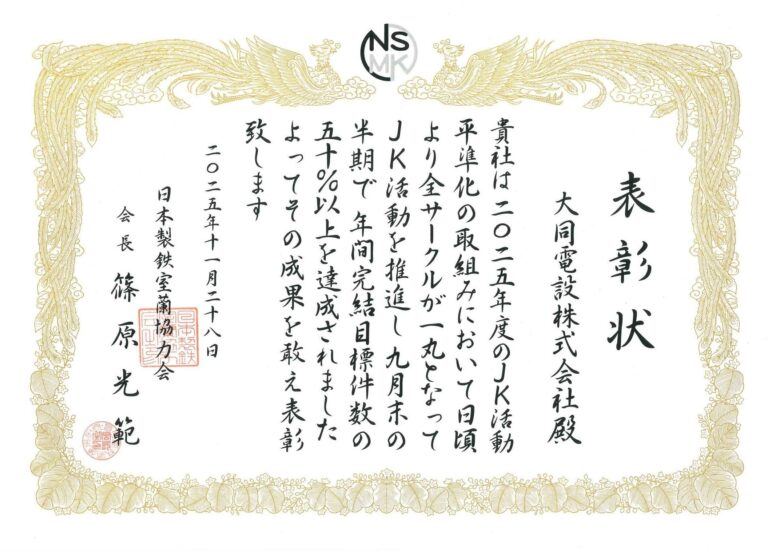 NS
MK
表彰状
大同電設株式会社殿
貴社は二〇二五年度のJK活動
平準化の取組みにおいて日頃
より全サークルが一丸となって
JK活動を推進し九月末の
半期で年間完結目標件数の
五十%以上を達成されました
よってその成果を敢え表彰
致します
二〇二五年十一月二十八日
日本製鉄室蘭協力会
会長 篠原光範